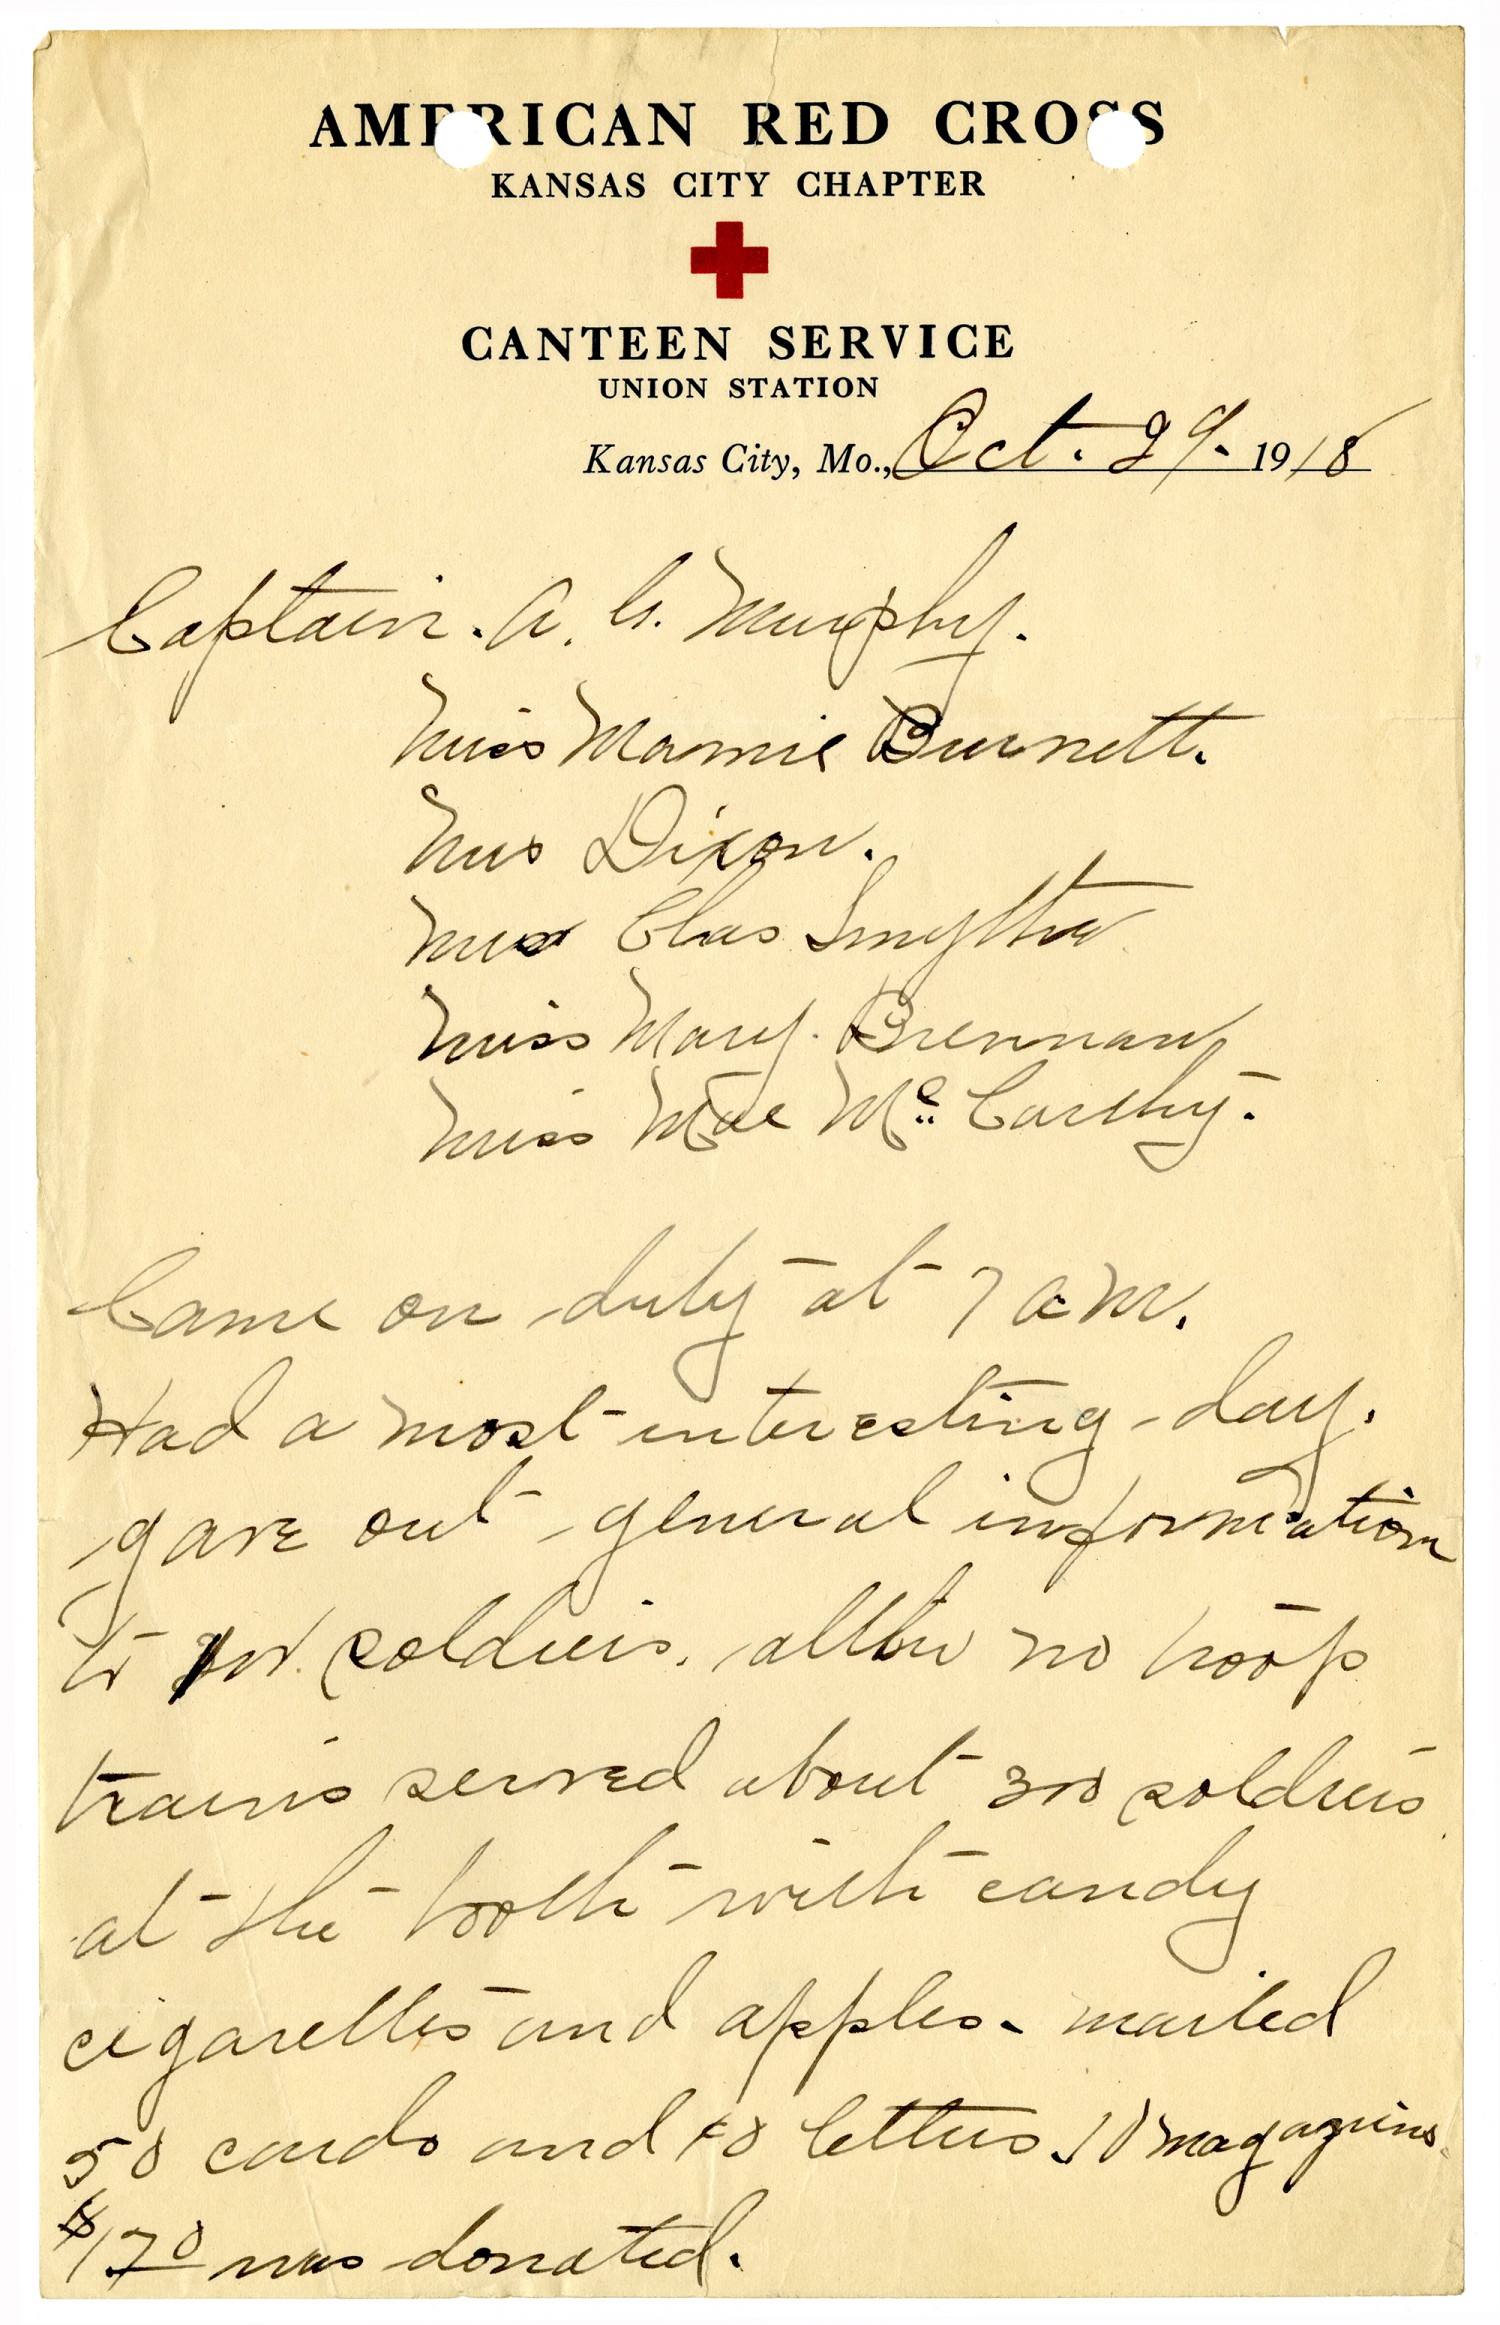 AMERICAN RED CROSS
KANSAS CITY CHAPTER
CANTEEN SERVICE
UNION STATION
Kansas City, Mo., Oct. 29. 1918
Captain. A. G. Murphy.
Miss Mamie Burnett.
Mrs Dixon.
Mrs Chas Smythe
Miss Mary. Brennan
Miss Mae Mc Carthy.
Came on duty at 7 a m.
Had a most interesting day.
gave out general information
to soldiers. altho no troop
trains served about 300 soldiers
at the booth with candy
cigarettes and apples - mailed
50 cards and letters. 10 magazines.
$1.70 was donated.